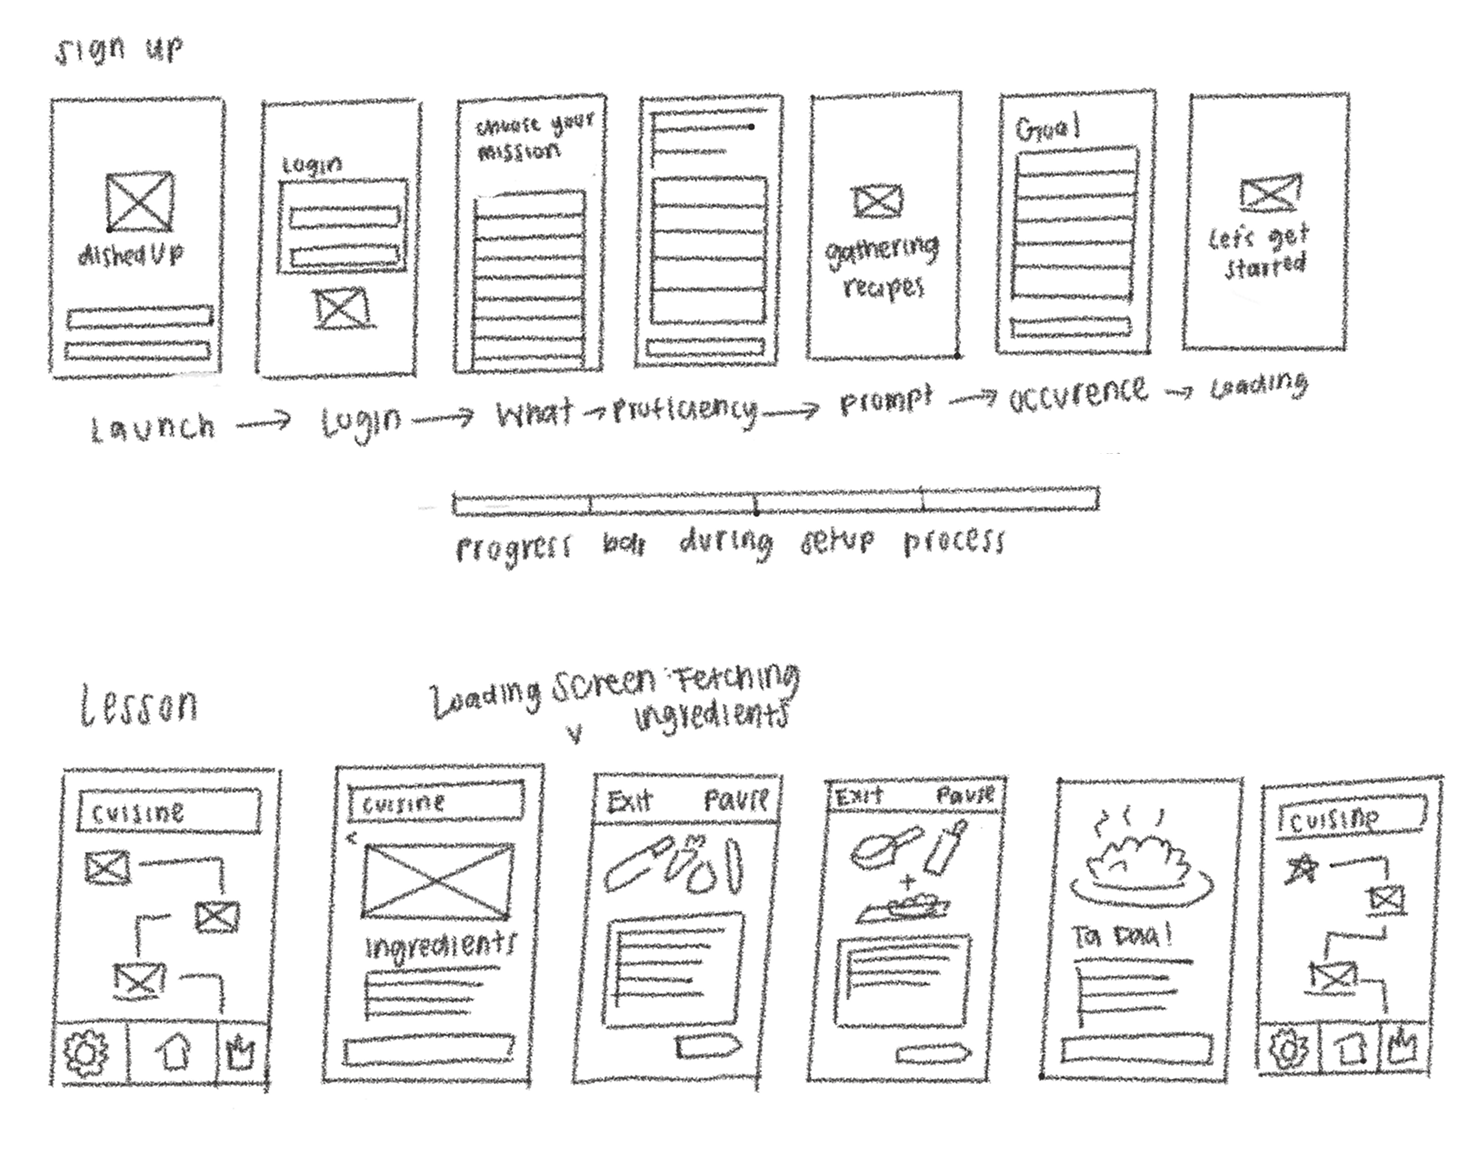 sign up
dishedUp
Login
choose your
mission
gathering
recipes
Goal
Let's get
started
Launch → Login → What → Proficiency → Prompt → occurence → Loading
Progress bar during setup process
Lesson
Loading Screen: Fetching
ingredients
cuisine
cuisine
ingredients
Exit Pause
Exit Pause
+
Ta Daa!
cuisine